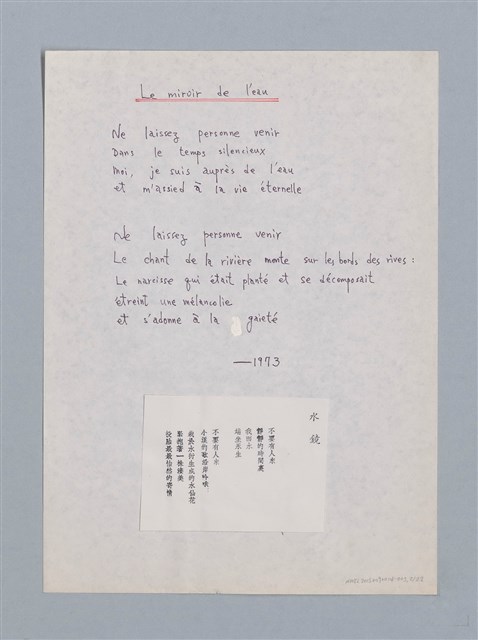 Le miroir de l'eau
Ne laissez personne venir
Dans le temps silencieux
Moi, je suis auprès de l'eau
et m'assied à la vie éternelle
Ne laissez personne venir
Le chant de la rivière monte sur les bords des rives :
Le narcisse qui était planté et se décomposait
étreint une mélancolie
et s'adonne à la gaieté
—1973
水鏡
不要有人來
靜靜的時間裏
我面水
端坐永生
不要有人來
小溪的歌沿岸吟哦
水仙花
緊抱著一株
的眷情